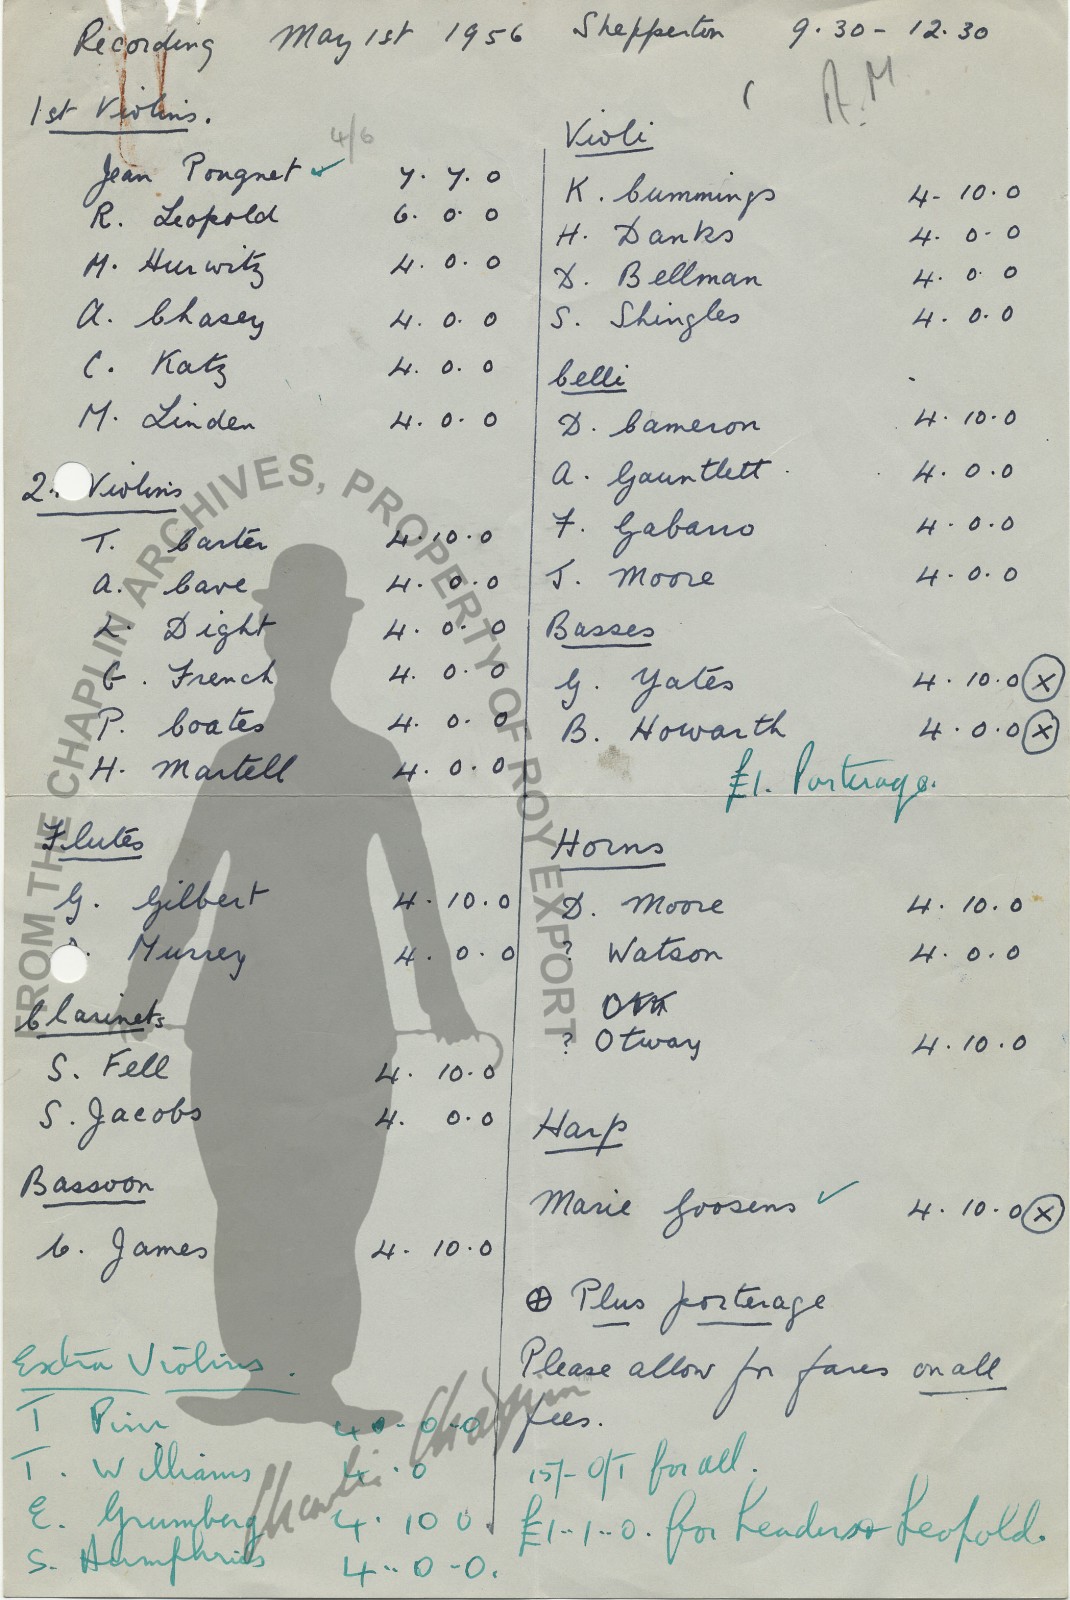 Recording May 1st 1956 Shepperton 9.30 - 12.30
A.M
1st Violins.
4/6
Jean Pougnet ✓ 7. 7. 0
R. Leopold 6. 0. 0
M. Hurwitz 4. 0. 0
A. Chasey 4. 0. 0
C. Katz 4. 0. 0
M. Linden 4. 0. 0
2. Violins
T. Carter 4.10.0
A. Cave 4. 0. 0
L. Dight 4. 0. 0
E. French 4. 0. 0
P. Coates 4. 0. 0
H. Martell 4. 0. 0
Flutes
G. Gilbert 4. 10. 0
Murrey 4. 0. 0
Clarinets
S. Fell 4. 10. 0
S. Jacobs 4. 0. 0
Bassoon
C. James 4. 10. 0
Extra Violins.
T 4 0-0
T. Williams 4. 0
E. Grumberg 4. 10 0
S. Humphries 4.. 0 - 0.
Violi
K. Cummings 4- 10. 0
H. Danks 4. 0- 0
D. Bellman 4. 0. 0
S. Shingles 4. 0. 0
Celli
D. Cameron 4. 10. 0
A. Gauntlett 4. 0. 0
F. Gabarro 4. 0. 0
J. Moore 4. 0. 0
Basses
G. Yates 4. 10. 0 X
B. Howarth 4. 0. 0 X
£1. Porterage.
Horns
D. Moore 4. 10. 0
? Watson 4. 0. 0
? Otway 4. 10. 0
Harp
Marie Goosens ✓ 4. 10. 0 X
⊕ Plus porterage
Please allow for fares on all
fees.
15/- O/T for all.
£1..1..0. for Leopold.
FROM THE CHAPLIN ARCHIVES, PROPERTY OF ROY EXPORT
Charlie Chaplin™